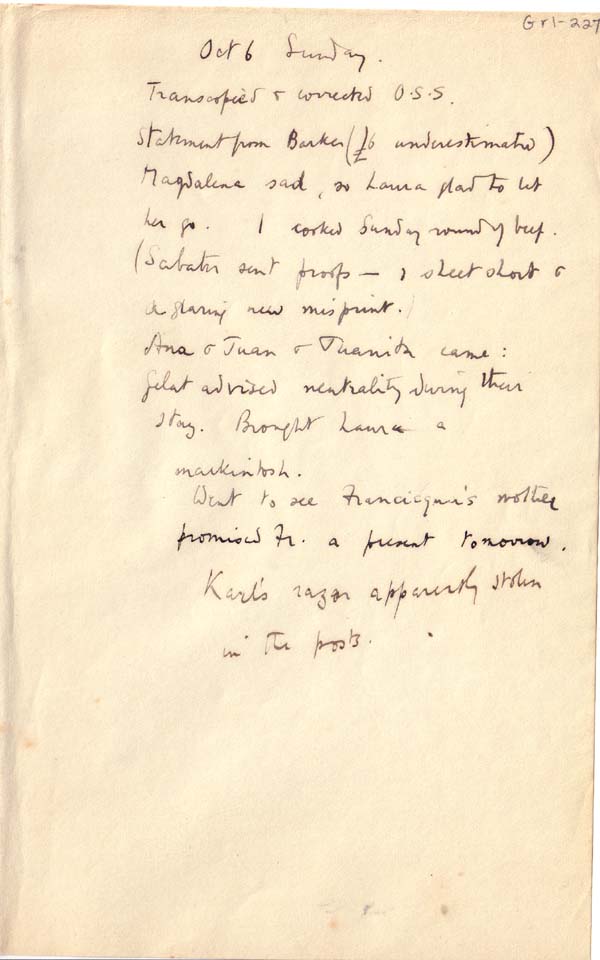 Gr1-227
Oct 6 Sunday.
Transcopied & corrected O.S.S.
Statement from Barker (£6 underestimated)
Magdalena sad, so Laura glad to let
her go. I cooked Sunday round of beef.
(Sabater sent proofs — 1 sheet short &
a glaring new misprint.)
Ana & Juan & Juanita came:
Gelat advised neutrality during their
stay. Brought Laura a
mackintosh.
Went to see Francisquia's mother
promised Fr. a present tomorrow.
Karl's razor apparently stolen
in the posts.